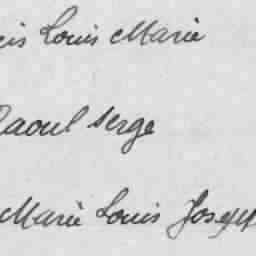 cis Louis Marie
Raoul Serge
Marie Louis Joseph